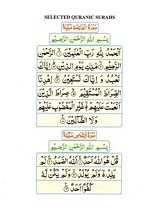 SELECTED QURANIC SURAHS
سُورَةُ الْفَاتِحَةِ مَكِّيَّة
بِسْمِ اللَّهِ الرَّحْمَٰنِ الرَّحِيمِ
اَلْحَمْدُ لِلَّهِ رَبِّ الْعٰلَمِيْنَ الرَّحْمٰنِ
الرَّحِيْمِ مٰلِكِ يَوْمِ الدِّيْنِ اِيَّاكَ
نَعْبُدُ وَ اِيَّاكَ نَسْتَعِيْنُ اِهْدِنَا
الصِّرَاطَ الْمُسْتَقِيْمَ صِرَاطَ الَّذِيْنَ
اَنْعَمْتَ عَلَيْهِمْ غَيْرِ الْمَغْضُوْبِ عَلَيْهِمْ
وَلَا الضَّآلِّيْنَ
سُورَةُ الْإِخْلَاصِ مَكِّيَّة
بِسْمِ اللَّهِ الرَّحْمَٰنِ الرَّحِيمِ
قُلْ هُوَ اللّٰهُ اَحَدٌ اَللّٰهُ الصَّمَدُ لَمْ
يَلِدْ وَ لَمْ يُوْلَدْ وَ لَمْ يَكُنْ لَّهٗ
كُفُوًا اَحَدٌ